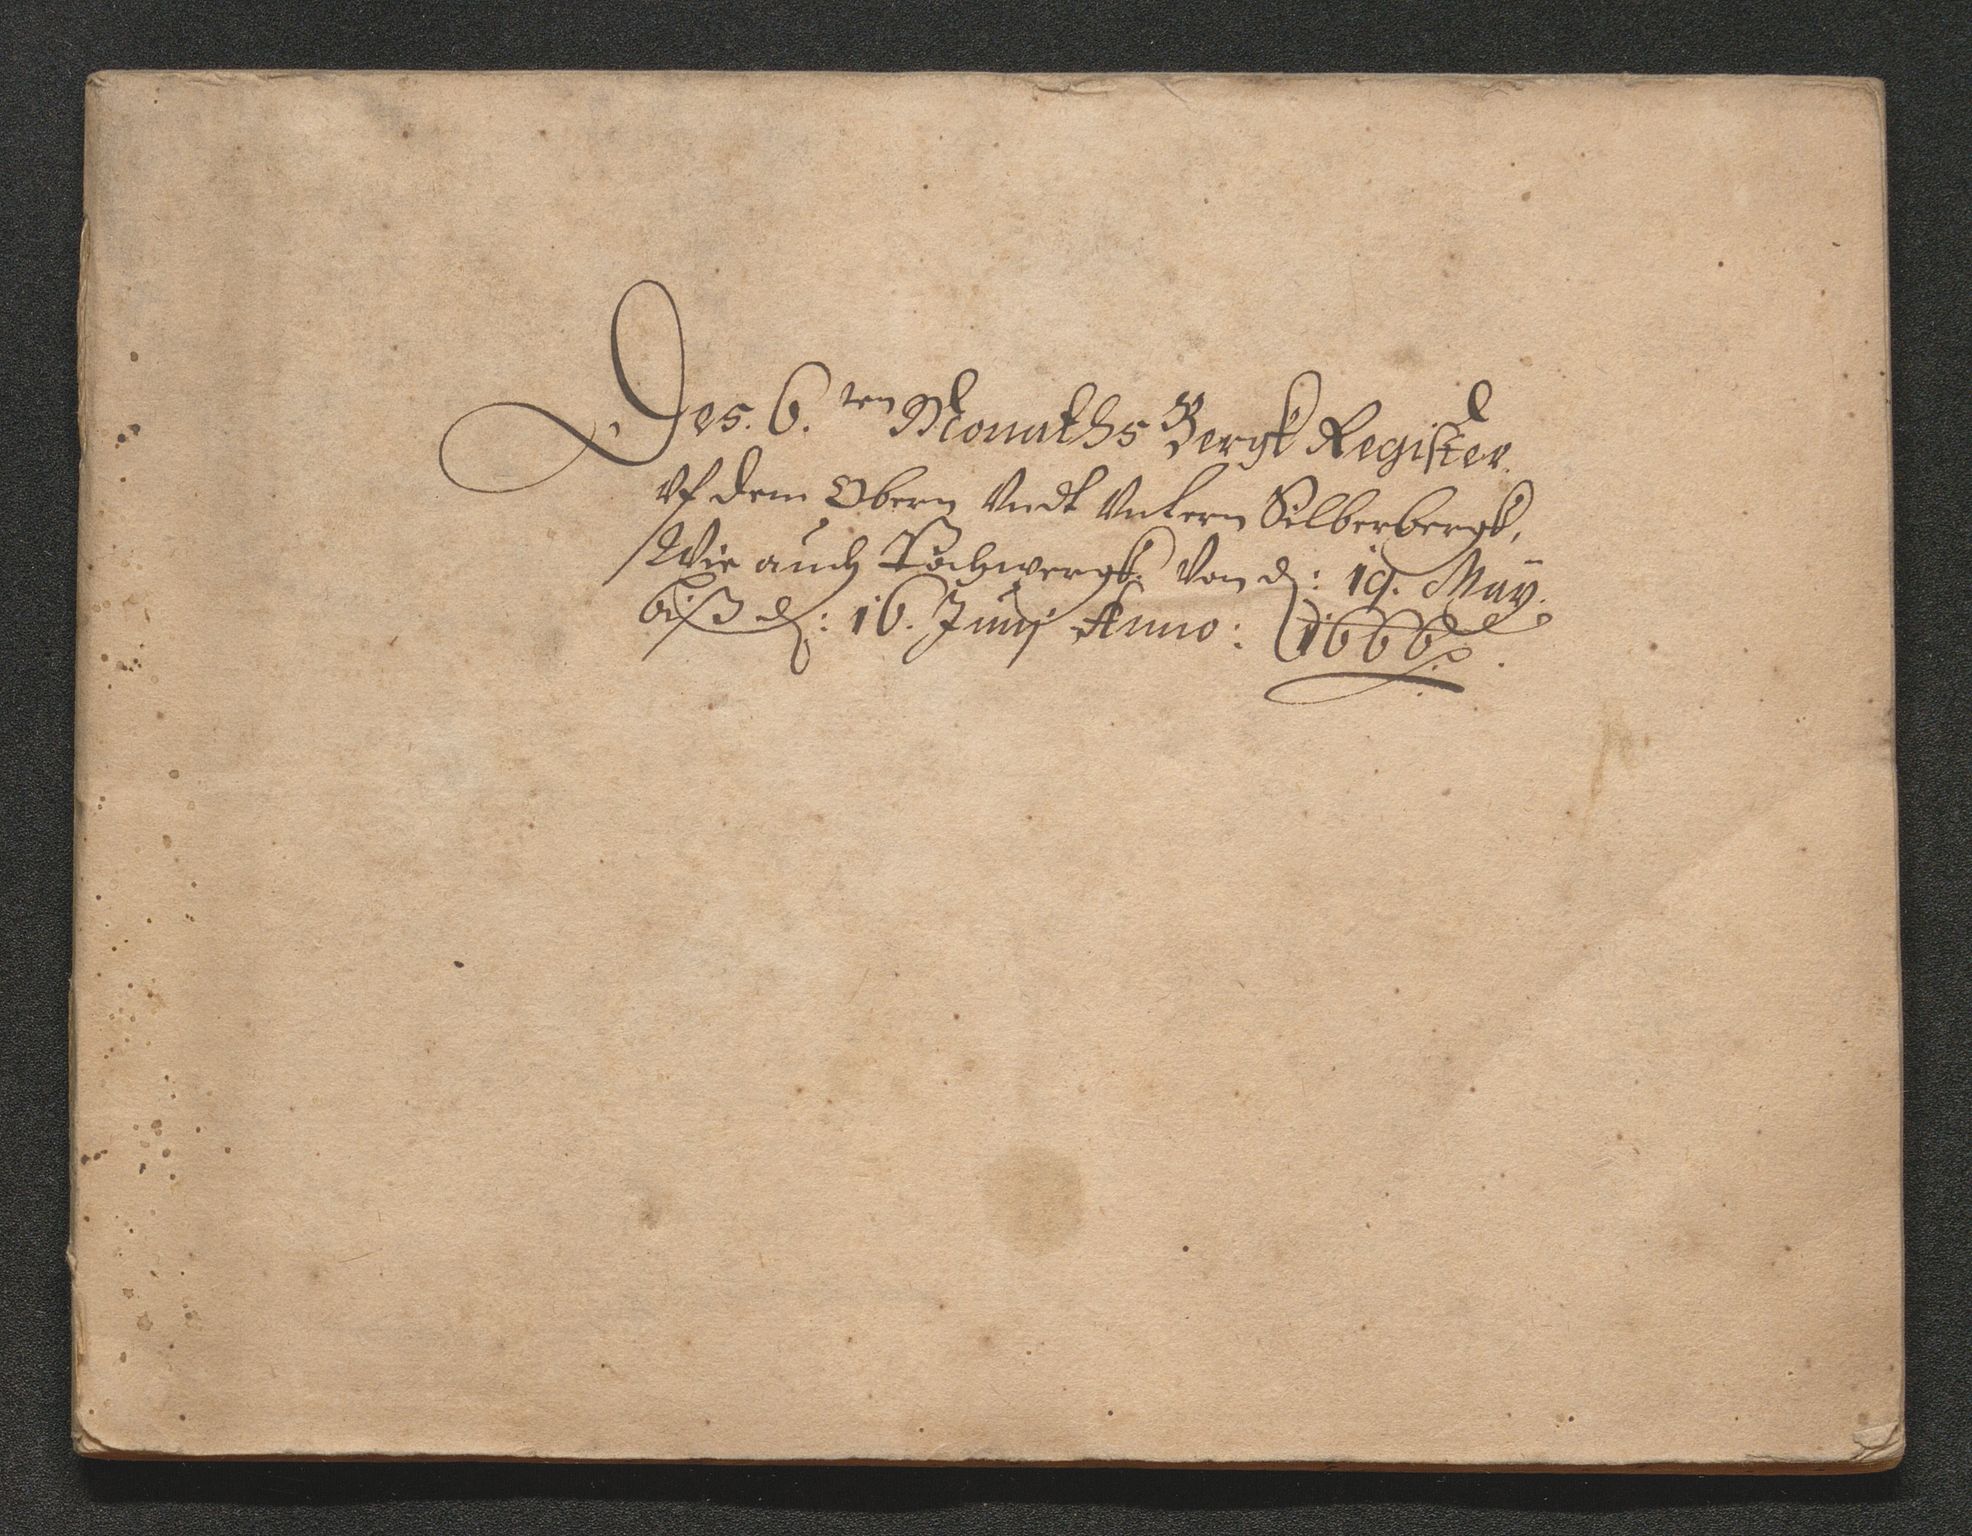 Des. 6.ten Monaths Bergk Register.
vf dem Obern Vndt Vntern Silberbergk,
Wie auch Pochwergk. Von d: 19. Maÿ.
biß d: 16. Junij Anno: 1666.